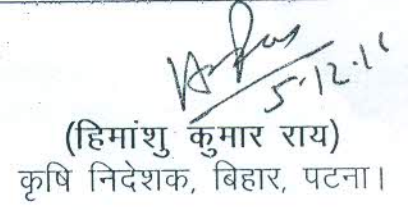 5.12.16
(हिमांशु कुमार राय)
कृषि निदेशक, बिहार, पटना।